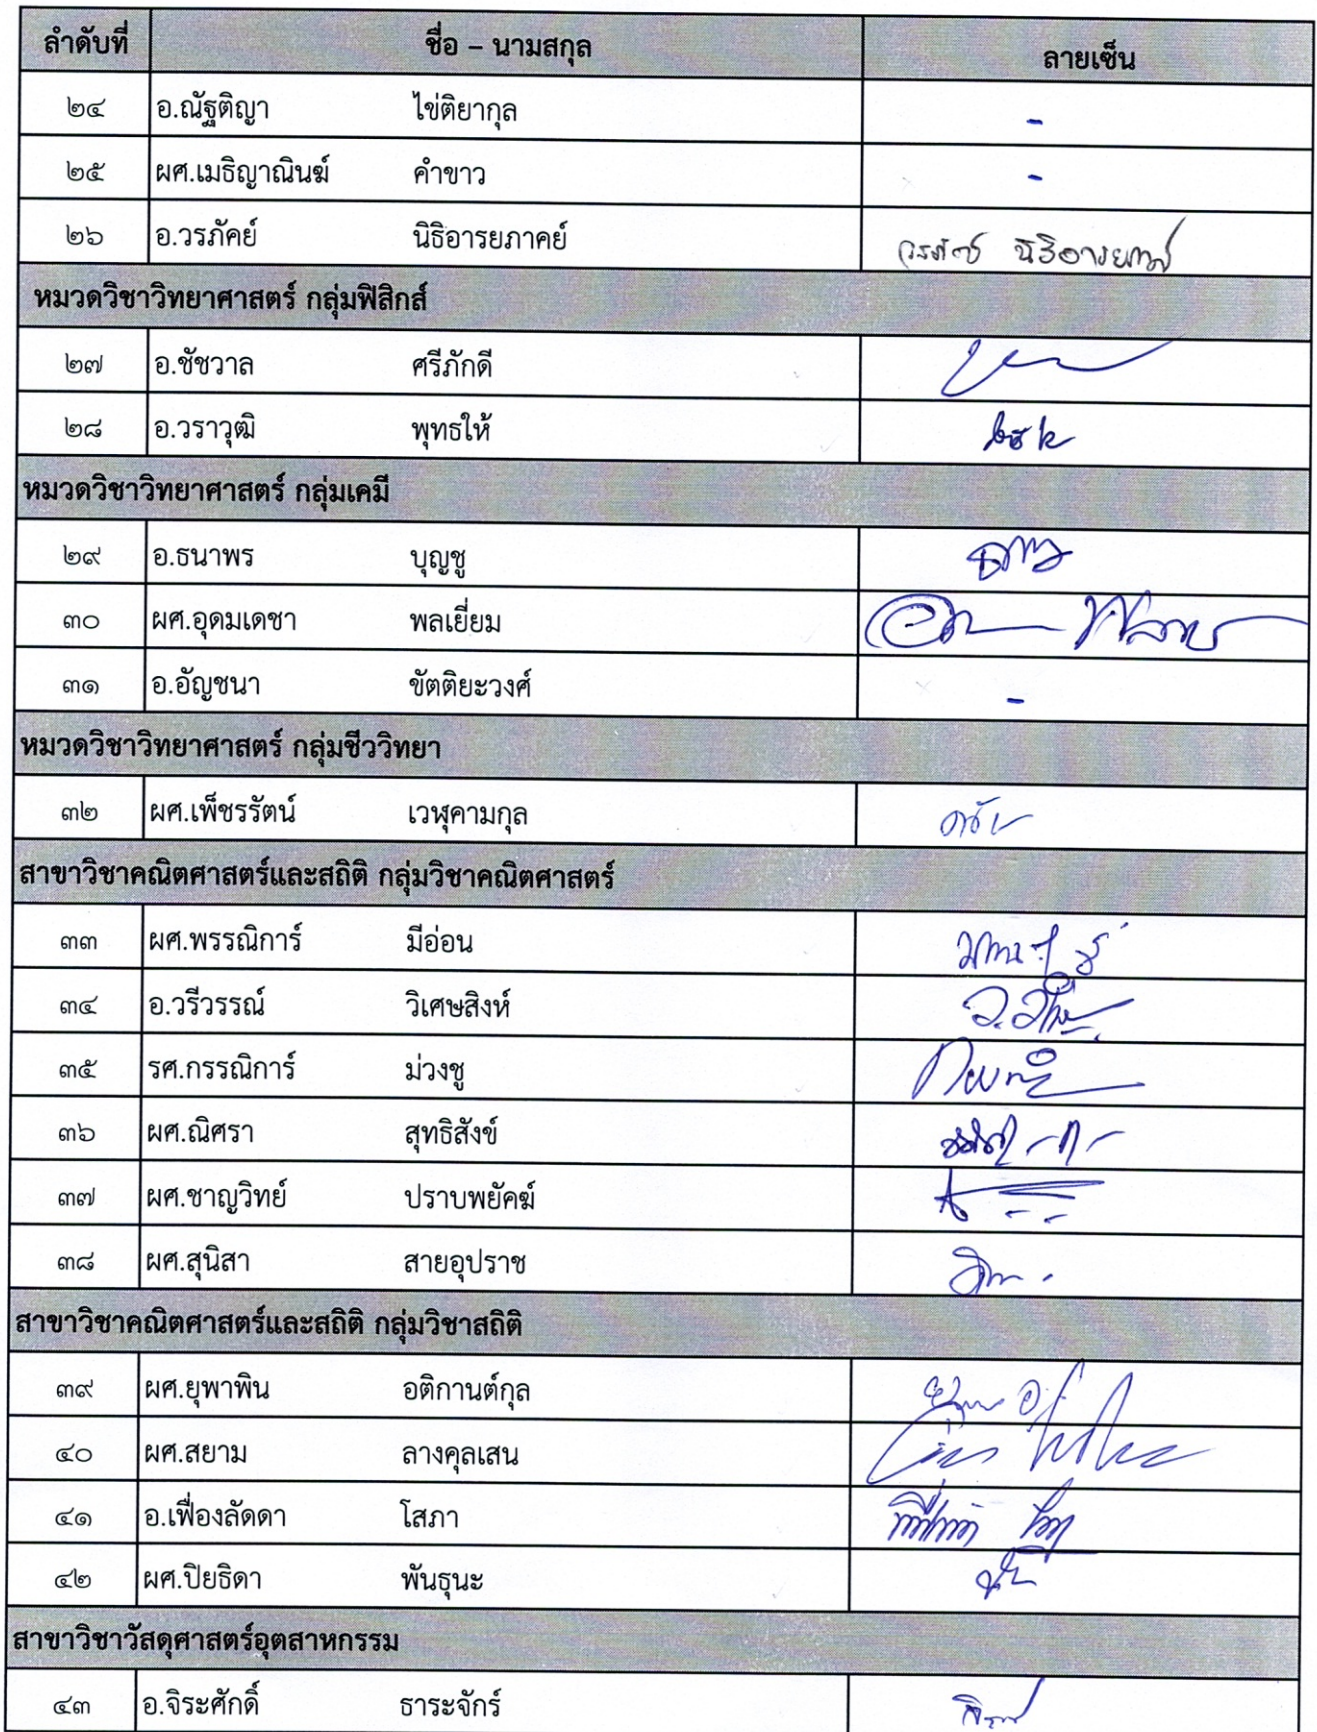 ลำดับที่ ชื่อ – นามสกุล ลายเซ็น
๒๔ อ.ณัฐติญา ไข่ติยากุล -
๒๕ ผศ.เมธิญาณินฆ์ คำขาว -
๒๖ อ.วรภัคย์ นิธิอารยภาคย์ วรภัคย์ นิธิอารยภาคย์
หมวดวิชาวิทยาศาสตร์ กลุ่มฟิสิกส์
๒๗ อ.ชัชวาล ศรีภักดี
๒๘ อ.วราวุฒิ พุทธให้
หมวดวิชาวิทยาศาสตร์ กลุ่มเคมี
๒๙ อ.ธนาพร บุญชู
๓๐ ผศ.อุดมเดชา พลเยี่ยม
๓๑ อ.อัญชนา ขัตติยะวงศ์ -
หมวดวิชาวิทยาศาสตร์ กลุ่มชีววิทยา
๓๒ ผศ.เพ็ชรรัตน์ เวฬุคามกุล
สาขาวิชาคณิตศาสตร์และสถิติ กลุ่มวิชาคณิตศาสตร์
๓๓ ผศ.พรรณิการ์ มีอ่อน
๓๔ อ.วรีวรรณ์ วิเศษสิงห์
๓๕ รศ.กรรณิการ์ ม่วงชู
๓๖ ผศ.ณิศรา สุทธิสังข์
๓๗ ผศ.ชาญวิทย์ ปราบพยัคฆ์
๓๘ ผศ.สุนิสา สายอุปราช
สาขาวิชาคณิตศาสตร์และสถิติ กลุ่มวิชาสถิติ
๓๙ ผศ.ยุพาพิน อติกานต์กุล
๔๐ ผศ.สยาม ลางคุลเสน
๔๑ อ.เฟื่องลัดดา โสภา
๔๒ ผศ.ปิยธิดา พันธุนะ
สาขาวิชาวัสดุศาสตร์อุตสาหกรรม
๔๓ อ.จิระศักดิ์ ธาระจักร์